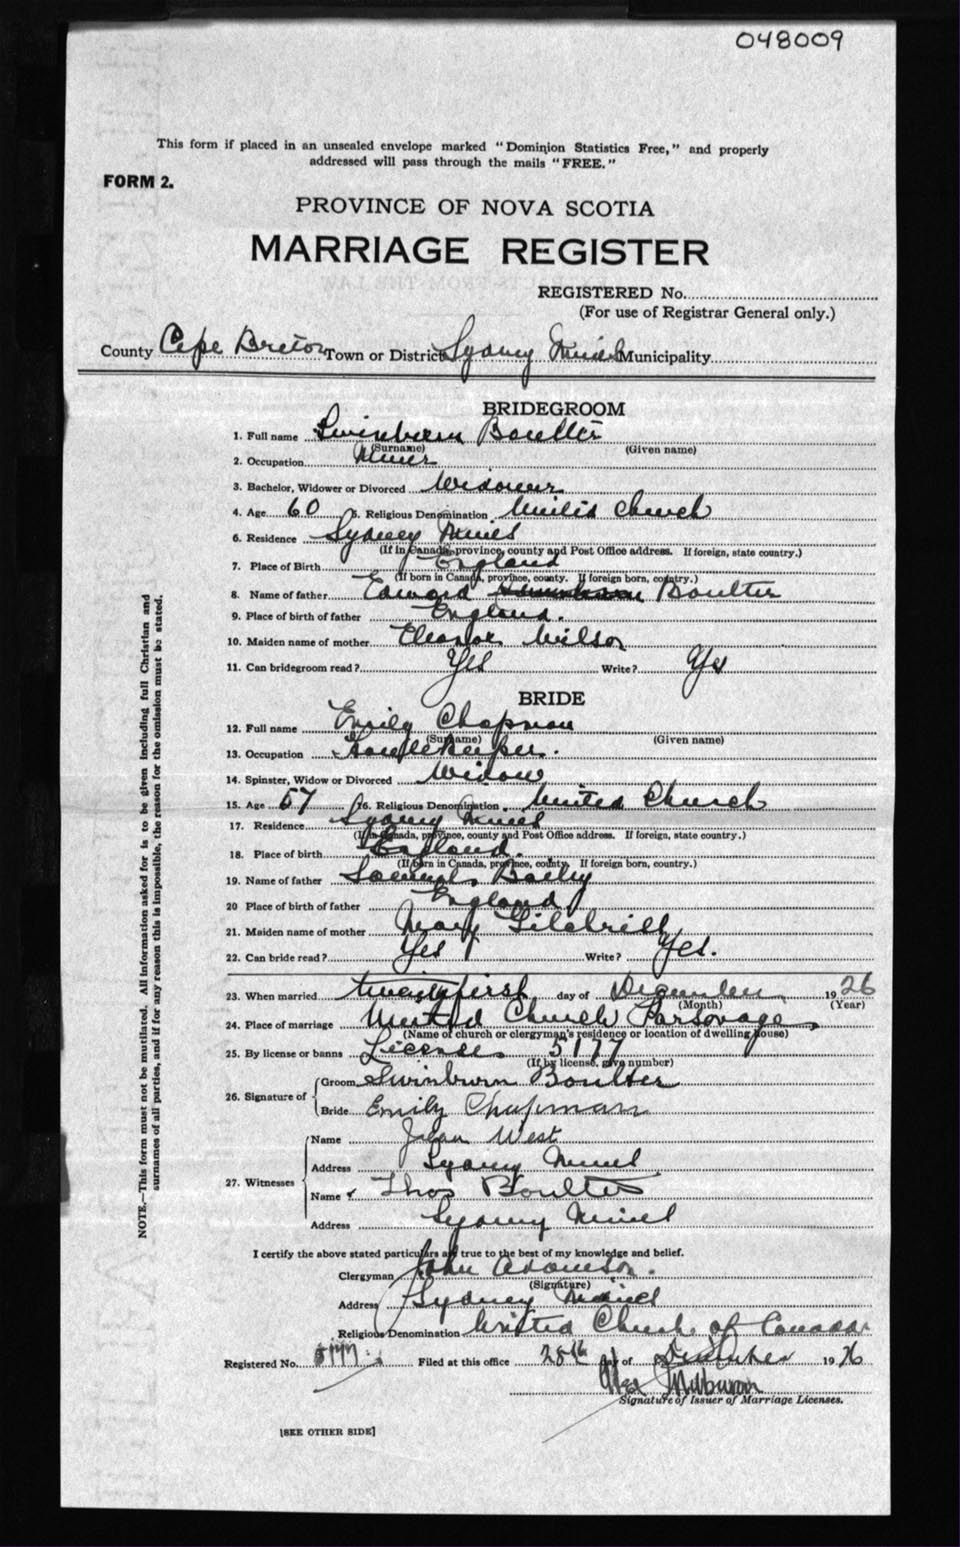 048009
This form if placed in an unsealed envelope marked "Dominion Statistics Free," and properly
addressed will pass through the mails "FREE."
FORM 2.
PROVINCE OF NOVA SCOTIA
MARRIAGE REGISTER
REGISTERED No.
(For use of Registrar General only.)
County Cape Breton Town or District Sydney Mines Municipality
BRIDEGROOM
1. Full name Swinburn Boulter
(Surname) (Given name)
2. Occupation Miner
3. Bachelor, Widower or Divorced Widower
4. Age 60 5. Religious Denomination United Church
6. Residence Sydney Mines
(If in Canada, province, county and Post Office address. If foreign, state country.)
7. Place of Birth England
(If born in Canada, province, county. If foreign born, country.)
8. Name of father Edward Boulter
9. Place of birth of father England.
10. Maiden name of mother Eleanor Wilson
11. Can bridegroom read? Yes Write? Yes
BRIDE
12. Full name Emily Chapman
(Surname) (Given name)
13. Occupation Housekeeper.
14. Spinster, Widow or Divorced Widow
15. Age 57 16. Religious Denomination United Church
17. Residence Sydney Mines
(If in Canada, province, county and Post Office address. If foreign, state country.)
18. Place of birth England.
(If born in Canada, province, county. If foreign born, country.)
19. Name of father Samuel Bailey
20 Place of birth of father England
21. Maiden name of mother Mary
22. Can bride read? Yes Write? Yes.
23. When married twenty first day of December 1926
(Month) (Year)
24. Place of marriage United Church Parsonage
(Name of church or clergyman's residence or location of dwelling house)
25. By license or banns License 5177
(If by license, give number)
26. Signature of Groom Swinburn Boulter
Bride Emily Chapman
27. Witnesses Name West
Address Sydney Mines
Name Thos Boulter
Address Sydney Mines
I certify the above stated particulars are true to the best of my knowledge and belief.
Clergyman John Adamson.
(Signature)
Address Sydney Mines
Religious Denomination United Church of Canada
Registered No. 5177 Filed at this office 28th day of December 1926
Alex Milburn
Signature of Issuer of Marriage Licenses.
[SEE OTHER SIDE]
NOTE.—This form must not be mutilated. All information asked for is to be given including full Christian and
surnames of all parties, and if for any reason this is impossible, the reason for the omission must be stated.